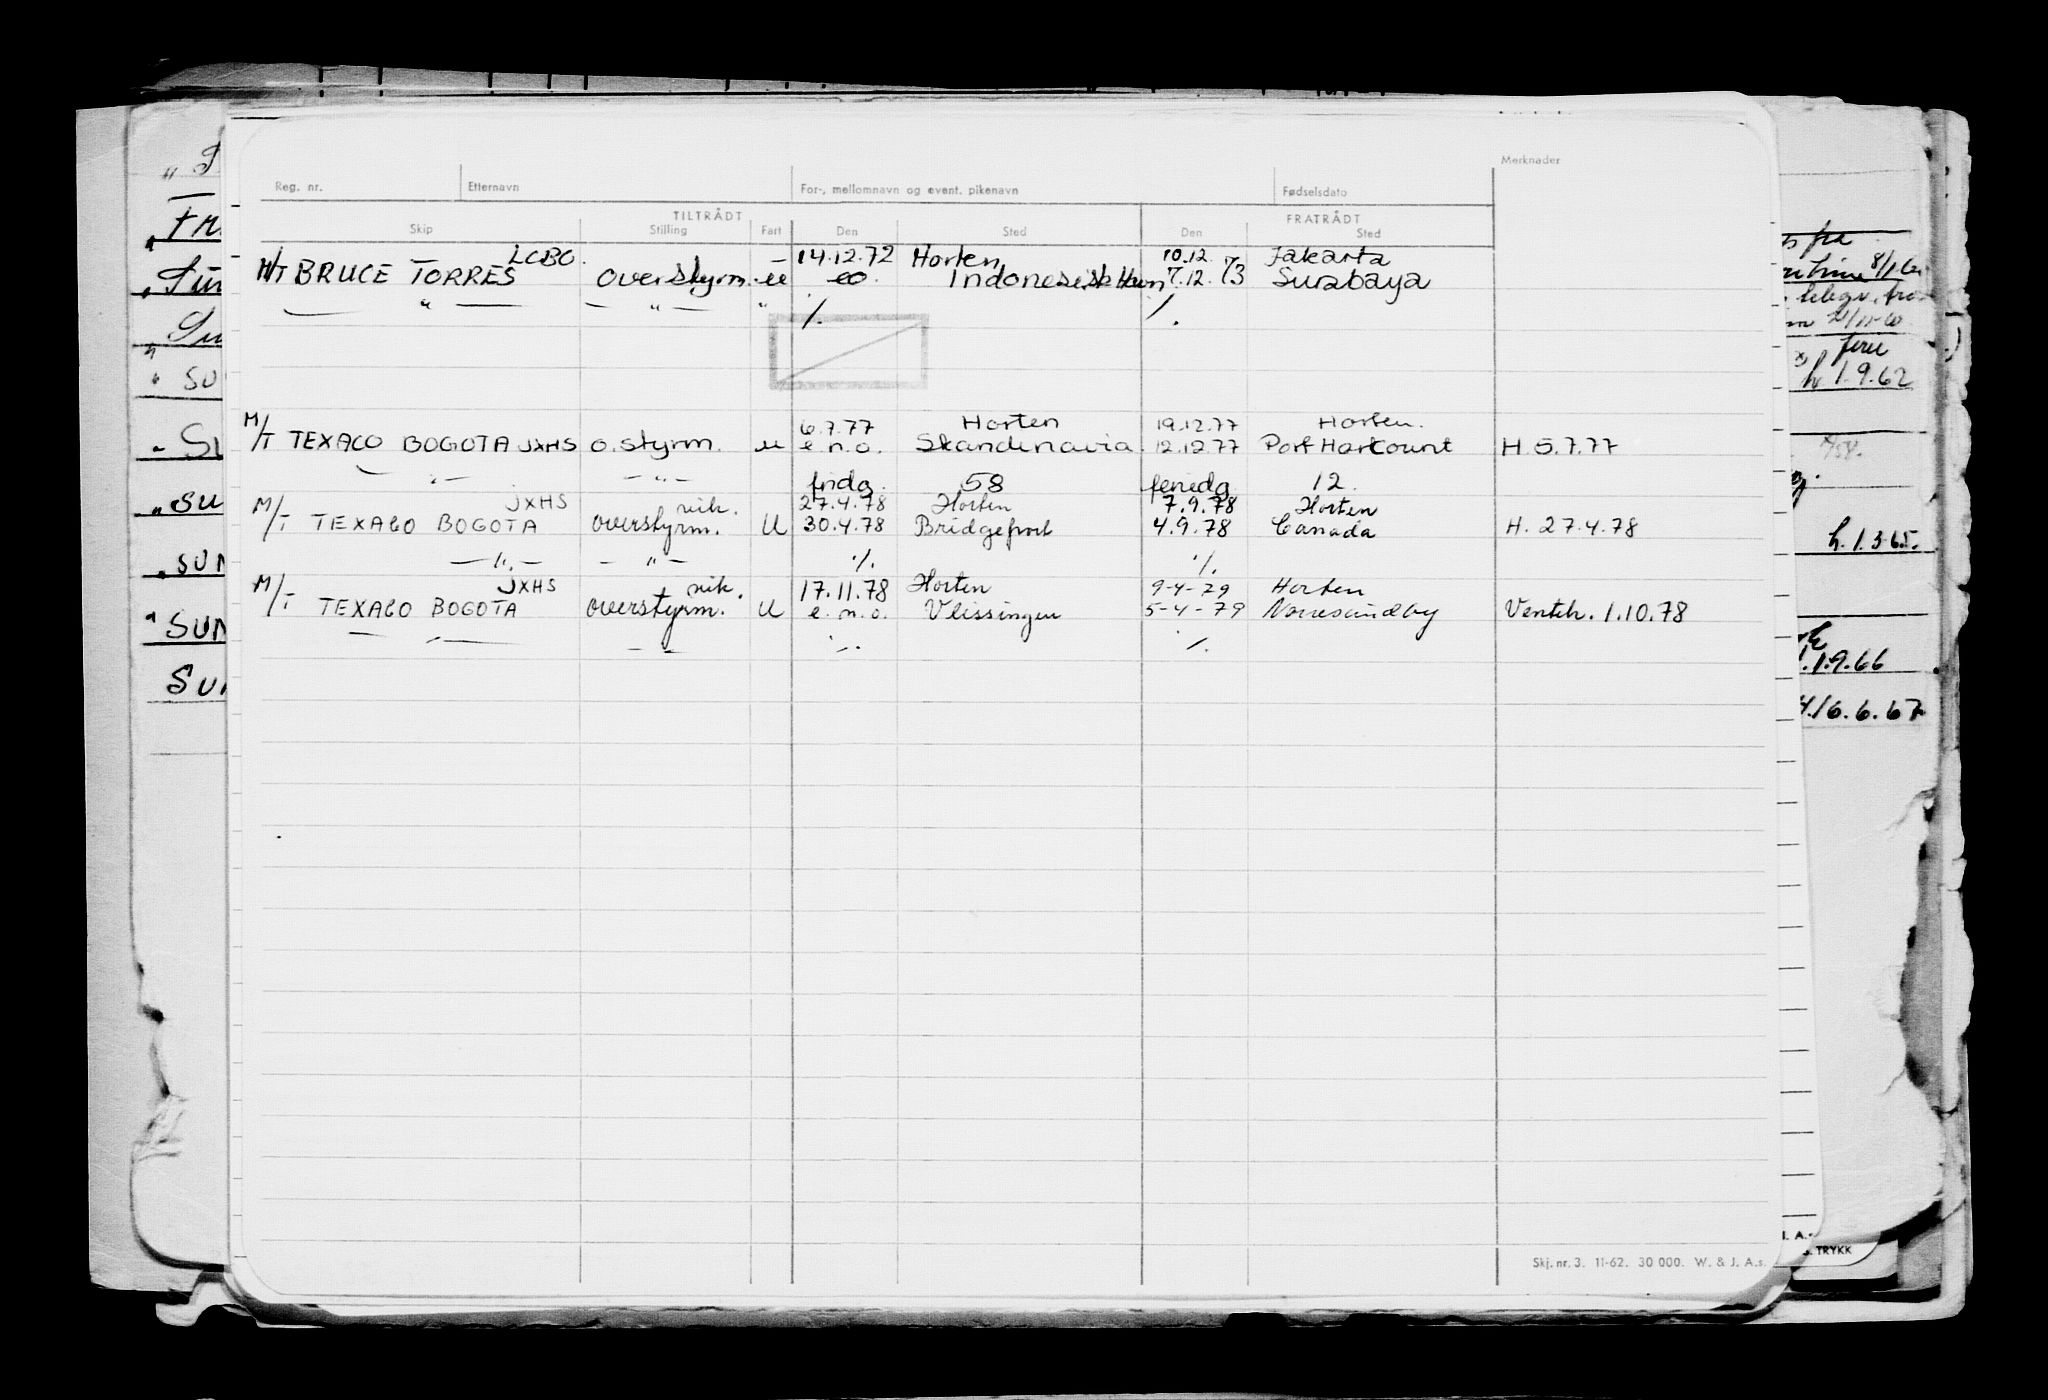 Merknader
Reg. nr. Etternavn For-, mellomnavn og event. pikenavn Fødselsdato
TILTRÅDT FRATRÅDT
Skip Stilling Fart Den Sted Den Sted
LCBO. 14.12.72 Horten 10.12. Jakarta
M/T BRUCE TORRES overstyrm. u eo Indonesisk Havn 7.12.73 Surabaya
— " — — " — " ./. ./.
6.7.77 Horten 19.12.77 Horten.
M/T TEXACO BOGOTA JXHS o.styrm. u e.n.o. Skandinavia 12.12.77 Port Harcourt H 5.7.77
— " — — " — fridg. 58 feriedg. 12.
JXHS vik. 27.4.78 Horten 7.9.78 Horten
M/T TEXACO BOGOTA overstyrm. U 30.4.78 Bridgeport 4.9.78 Canada H. 27.4.78
— " — — " — ./. ./.
JXHS vik. 17.11.78 Horten 9-4-79 Horten
M/T TEXACO BOGOTA overstyrm. U e.n.o. Vlissingen 5-4-79 Nørresundby Ventch. 1.10.78
— " — — — ./. ./.
Skj. nr. 3. 11-62. 30 000. W. & J. A.s.
SUN
SUN
8/1
1.9.62
h. 1.3.65.
1.9.66
16.6.67
TRYKK